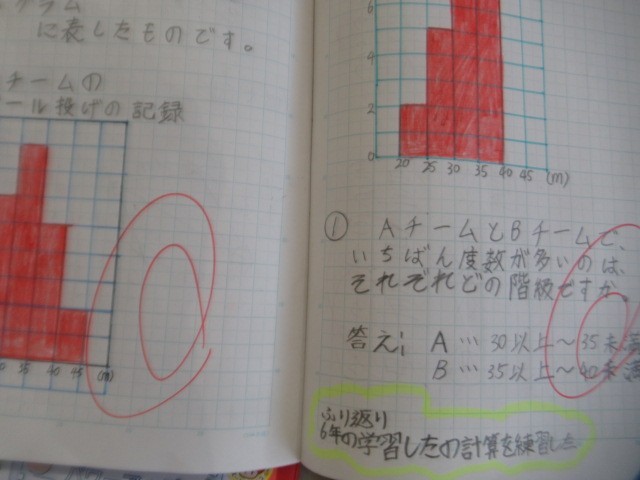 グラム
に表したものです。
チームの
ール投げの記録
40 45 (m)
6
4
2
0
20 25 30 35 40 45 (m)
① AチームとBチームで、
いちばん度数が多いのは、
それぞれどの階級ですか。
答え; A … 30以上〜35未満
B … 35以上〜40未満
ふり返り
6年の学習したの計算を練習した